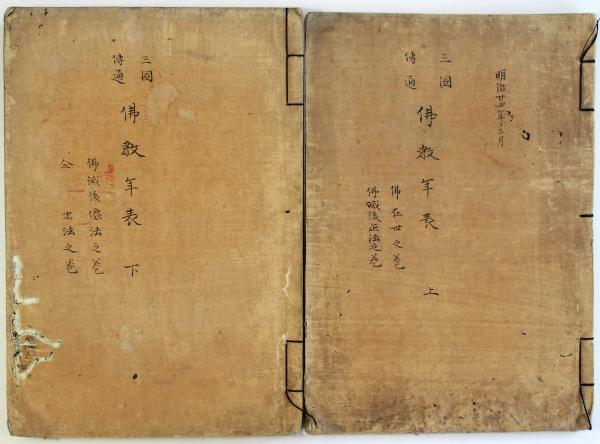 明治廿四年三月
三國
傳通
佛教年表 上
佛在世之巻
佛滅後正法之巻
三國
傳通
佛教年表 下
佛滅後像法之巻
仝 末法之巻